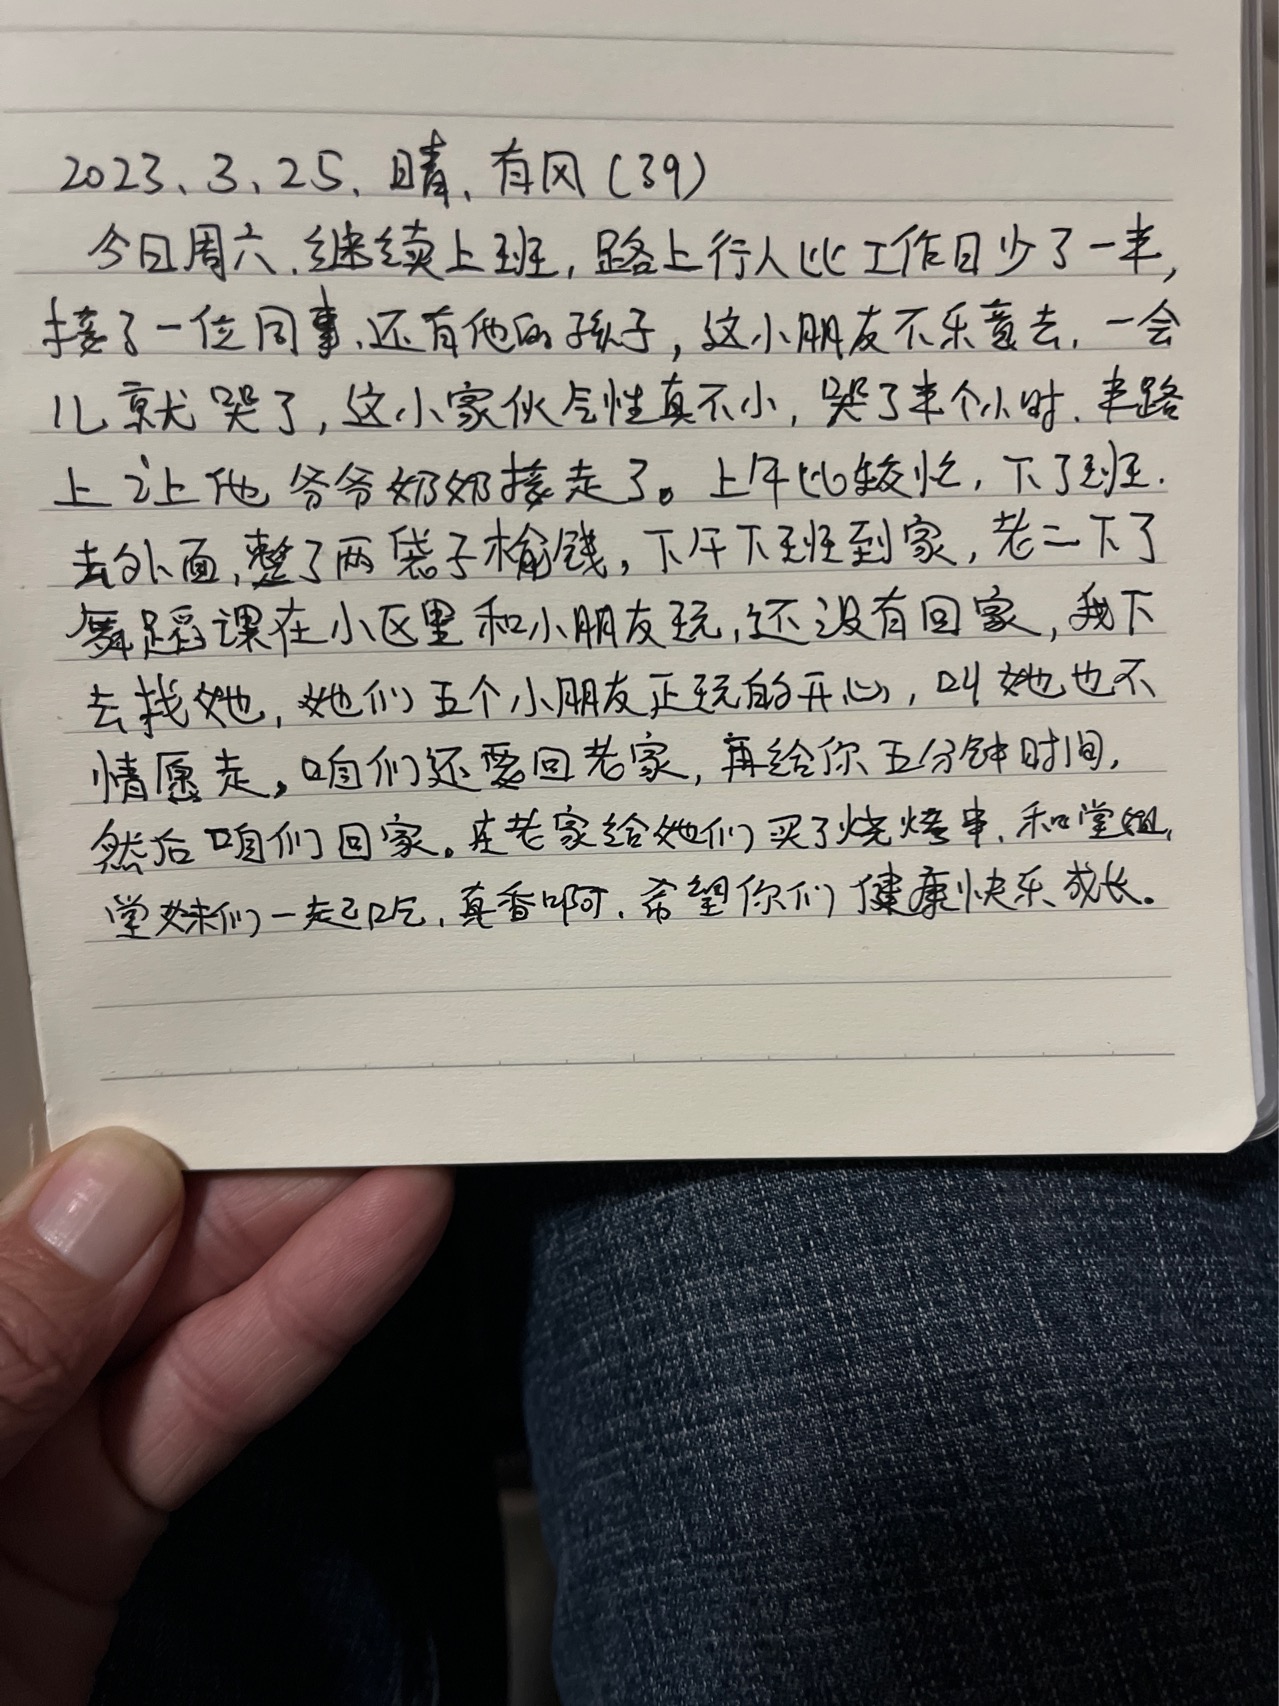 2023、3、25、晴、有风(39)
今日周六、继续上班,路上行人比工作日少了一半,
接了一位同事、还有他的孩子,这小朋友不乐意去、一会
儿就哭了,这小家伙气性真不小,哭了半个小时、半路
上让他爷爷奶奶接走了。上午比较忙,下了班、
去外面,整了两袋子榆钱,下午下班到家,老二下了
舞蹈课在小区里和小朋友玩,还没有回家,我下
去找她,她们五个小朋友正玩的开心,叫她也不
情愿走。咱们还要回老家,再给你五分钟时间,
然后咱们回家。在老家给她们买了烧烤串、和堂姐、
堂妹们一起吃,真香啊、希望你们健康快乐成长。